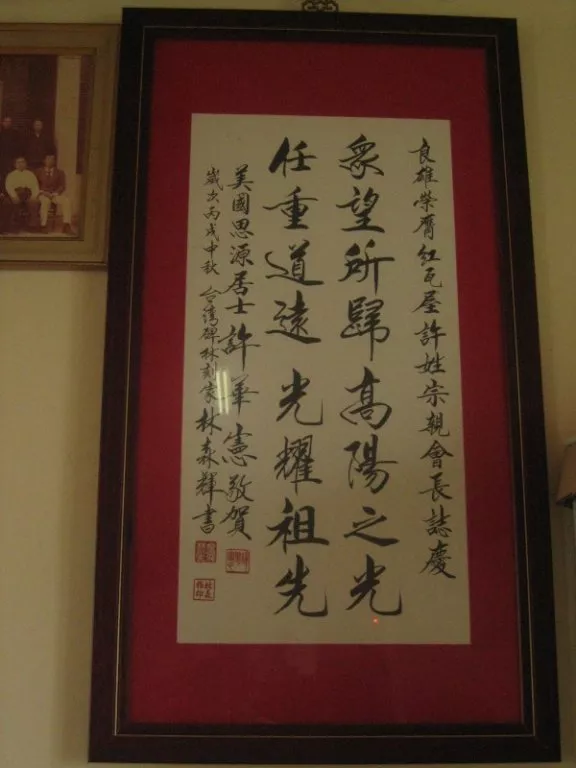 良雄榮膺紅瓦屋許姓宗親會長誌慶
眾望所歸高陽之光
任重道遠光耀祖先
美國思源居士許華憲敬賀
歲次丙戌中秋 台灣碑林刻家林森輝書